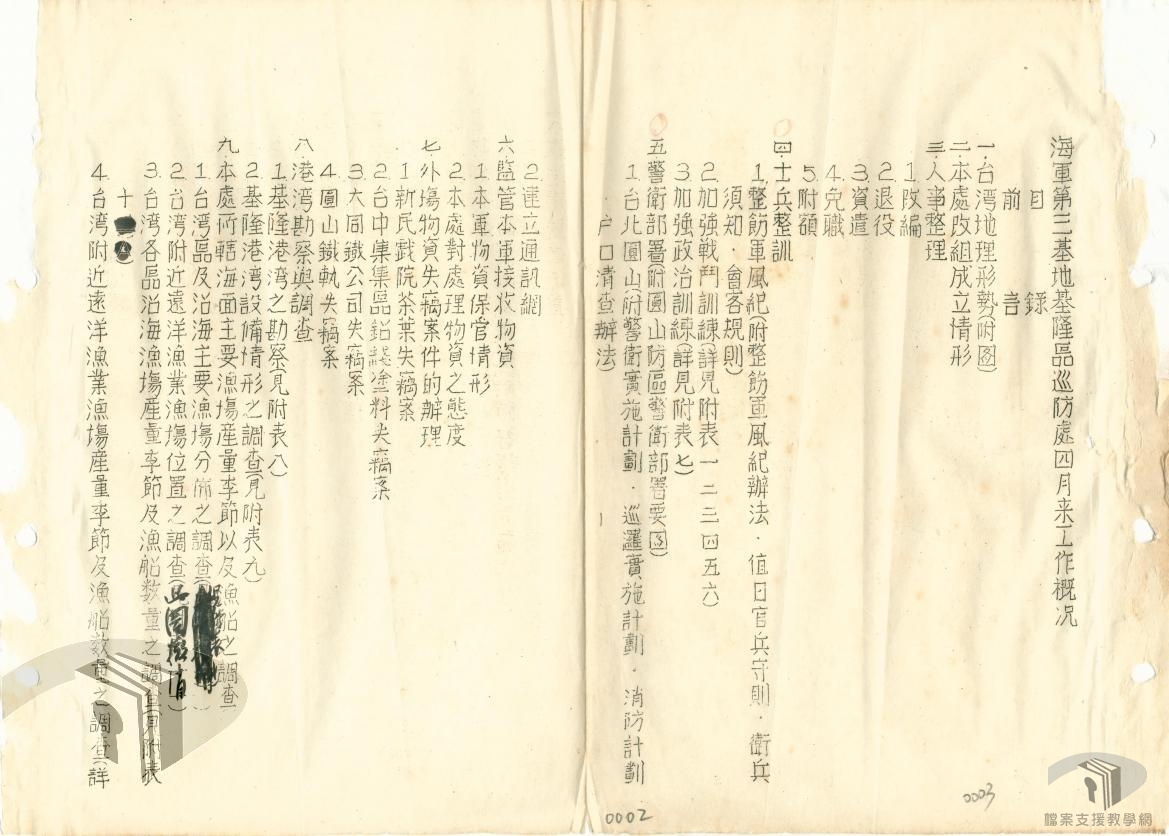 海軍第三基地基隆區巡防處四月来工作概况
目錄
前言
一台湾地理形勢附图)
二本處改組成立情形
三人事整理
1.改編
2.退役
3.資遣
4.免職
5.附額
四士兵整訓
1.整飭軍風紀(附整飭軍風紀辦法．值日官兵守則．衛兵
須知．會客規則)
2.加強戰鬥訓練(詳見附表一二三四五六)
3.加強政治訓練(詳見附表七)
五警衛部署(附圓山防區警衛部署要图)
1.台北圓山(附警衛實施計劃．巡邏實施計劃．消防計劃
．户口清查辦法)
2.建立通訊網
六監管本軍接收物資
1.本軍物資保官情形
2.本處對處理物資之態度
七外塲物資失竊案件的辦理
1.新民戯院茶葉失竊案
2.台中集集區鋁綫塗料失竊案
3.大同鐵公司失竊案
4.圓山鐵軌失竊案
八港湾勘察與調查
1.基隆港湾之勘察見附表八)
2.基隆港湾設備情形之調查(見附表九)
九本處所轄海面主要漁塲産量季節以及漁船之調查
1.台湾區及沿海主要漁塲分佈之調查(
2.台湾附近遠洋漁業漁塲位置之調查(
3.台湾各區沿海漁塲産量季節及漁船数量之調查(見附表
十
4.台湾附近遠洋漁業漁塲産量季節及漁船数量之調查(詳
0002
0003
檔案支援教學網